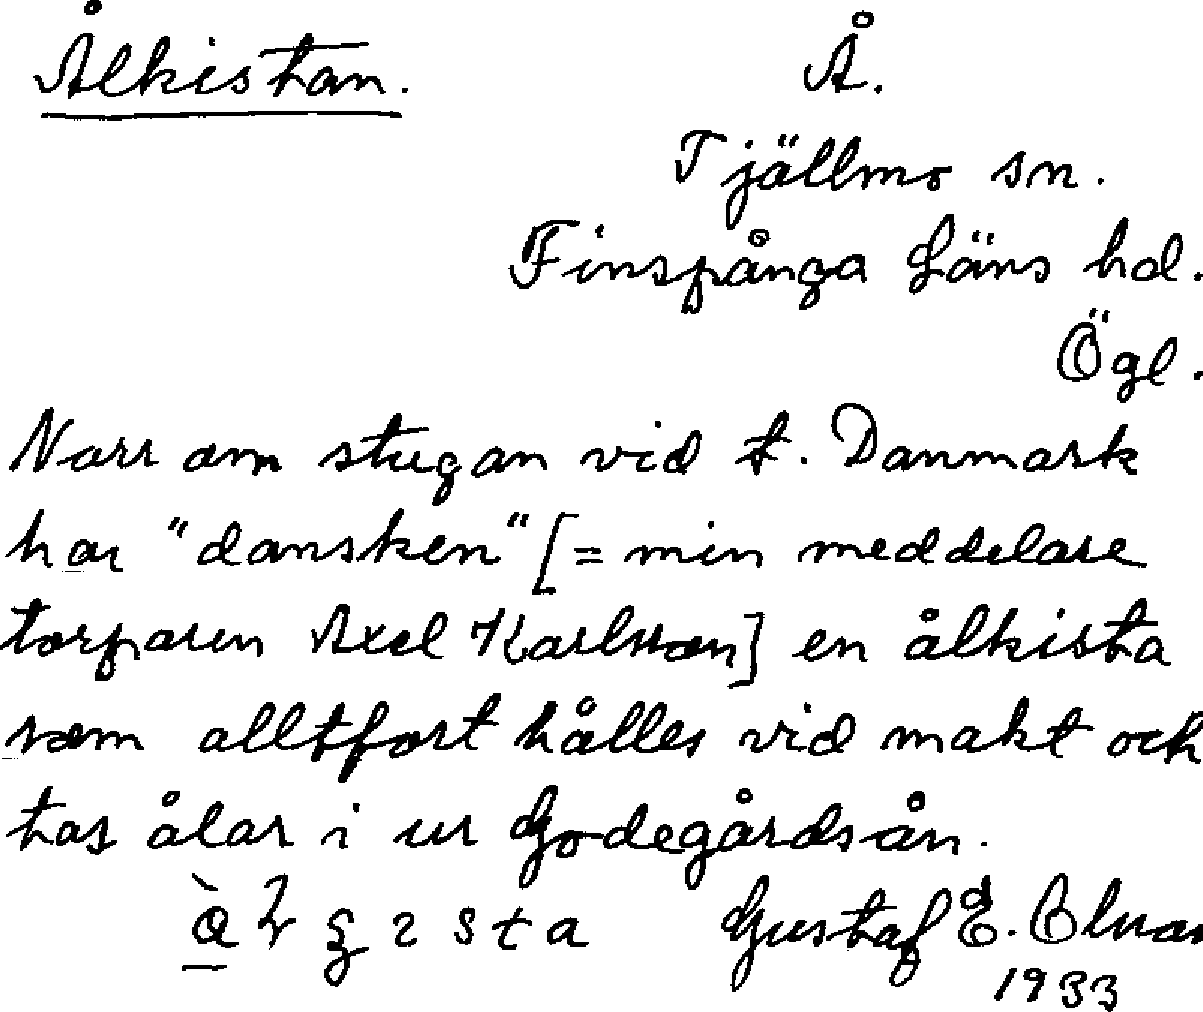 Ålkistan. Å.
Tjällmo sn.
Finspånga Läns hd.
Ögl.
Norr om stugan vid t. Danmark
har "dansken" [= min meddelare
torparen Axel Karlsson] en ålkista
som alltfort hålles vid makt och
tas ålar i ur Godegårdsån.
Gustaf E.
1933